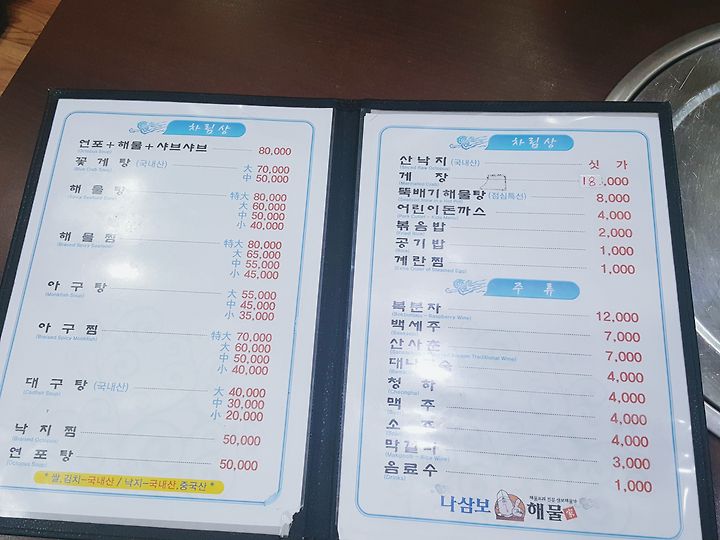 차림상
연포+해물+샤브샤브 80,000
(Octopus Soup)
꽃게탕 (국내산) 大 70,000
(Blue Crab Soup) 中 50,000
해물탕 特大 80,000
(Spicy Seafood Soup) 大 60,000
中 50,000
小 40,000
해물찜 特大 80,000
(Braised Spicy Seafood) 大 65,000
中 55,000
小 45,000
아구탕 大 55,000
(Monkfish Soup) 中 45,000
小 35,000
아구찜 特大 70,000
(Braised Spicy Monkfish) 大 60,000
中 50,000
小 40,000
대구탕 (국내산) 大 40,000
(Codfish Soup) 中 30,000
小 20,000
낙지찜 50,000
(Braised Octopus)
연포탕 50,000
(Octopus Soup)
* 쌀,김치-국내산 / 낙지-국내산,중국산 *
차림상
산낙지 (국내산) 싯 가
게장 18,000
뚝배기해물탕 (점심특선) 8,000
어린이돈까스 4,000
볶음밥 2,000
공기밥 1,000
계란찜 1,000
주류
복분자 12,000
(Bokbunja - Raspberry Wine)
백세주 7,000
산사춘 7,000
4,000
청하 4,000
(Cheongha)
맥주 4,000
(Beer)
소주 4,000
막걸리 3,000
(Makgeolli - Rice Wine)
음료수 1,000
(Drinks)
나삼보 해물